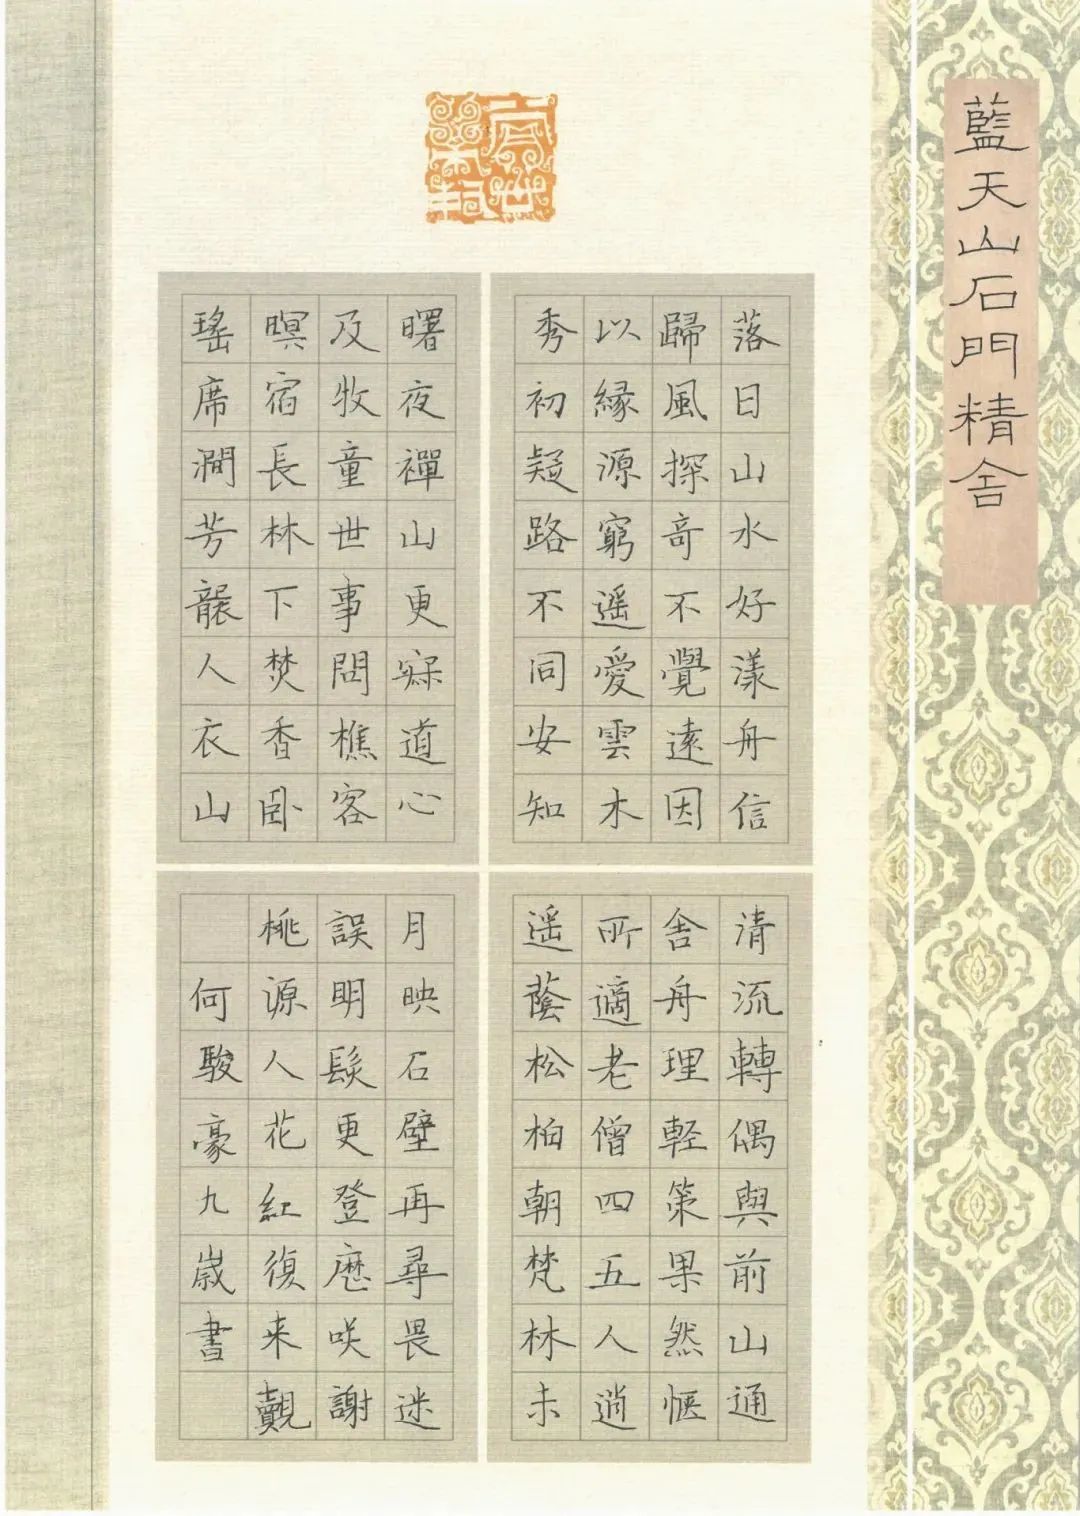 藍天山石門精舍
落日山水好漾舟信
歸風探奇不覺遠因
以緣源窮遥愛雲木
秀初疑路不同安知
清流轉偶與前山通
舍舟理軽策果然愜
所適老僧四五人逍
遥蔭松柏朝梵林未
曙夜禪山更寂道心
及牧童世事問樵客
暝宿長林下焚香卧
瑤席澗芳襲人衣山
月映石壁再尋畏迷
誤明髮更登歷咲謝
桃源人花紅復来覿
何駿豪九歲書